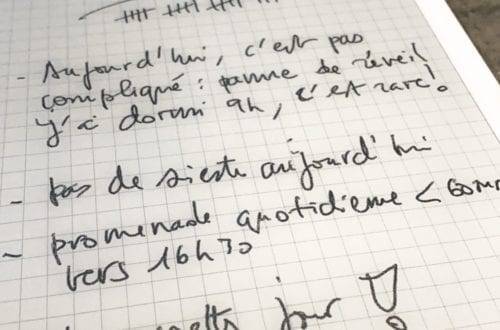 - Aujourd'hui, c'est pas
compliqué : panne de réveil
j'ai dormi 9h, c'est rare!
- pas de sieste aujourd'hui
- promenade quotidienne <
vers 16h30
jour